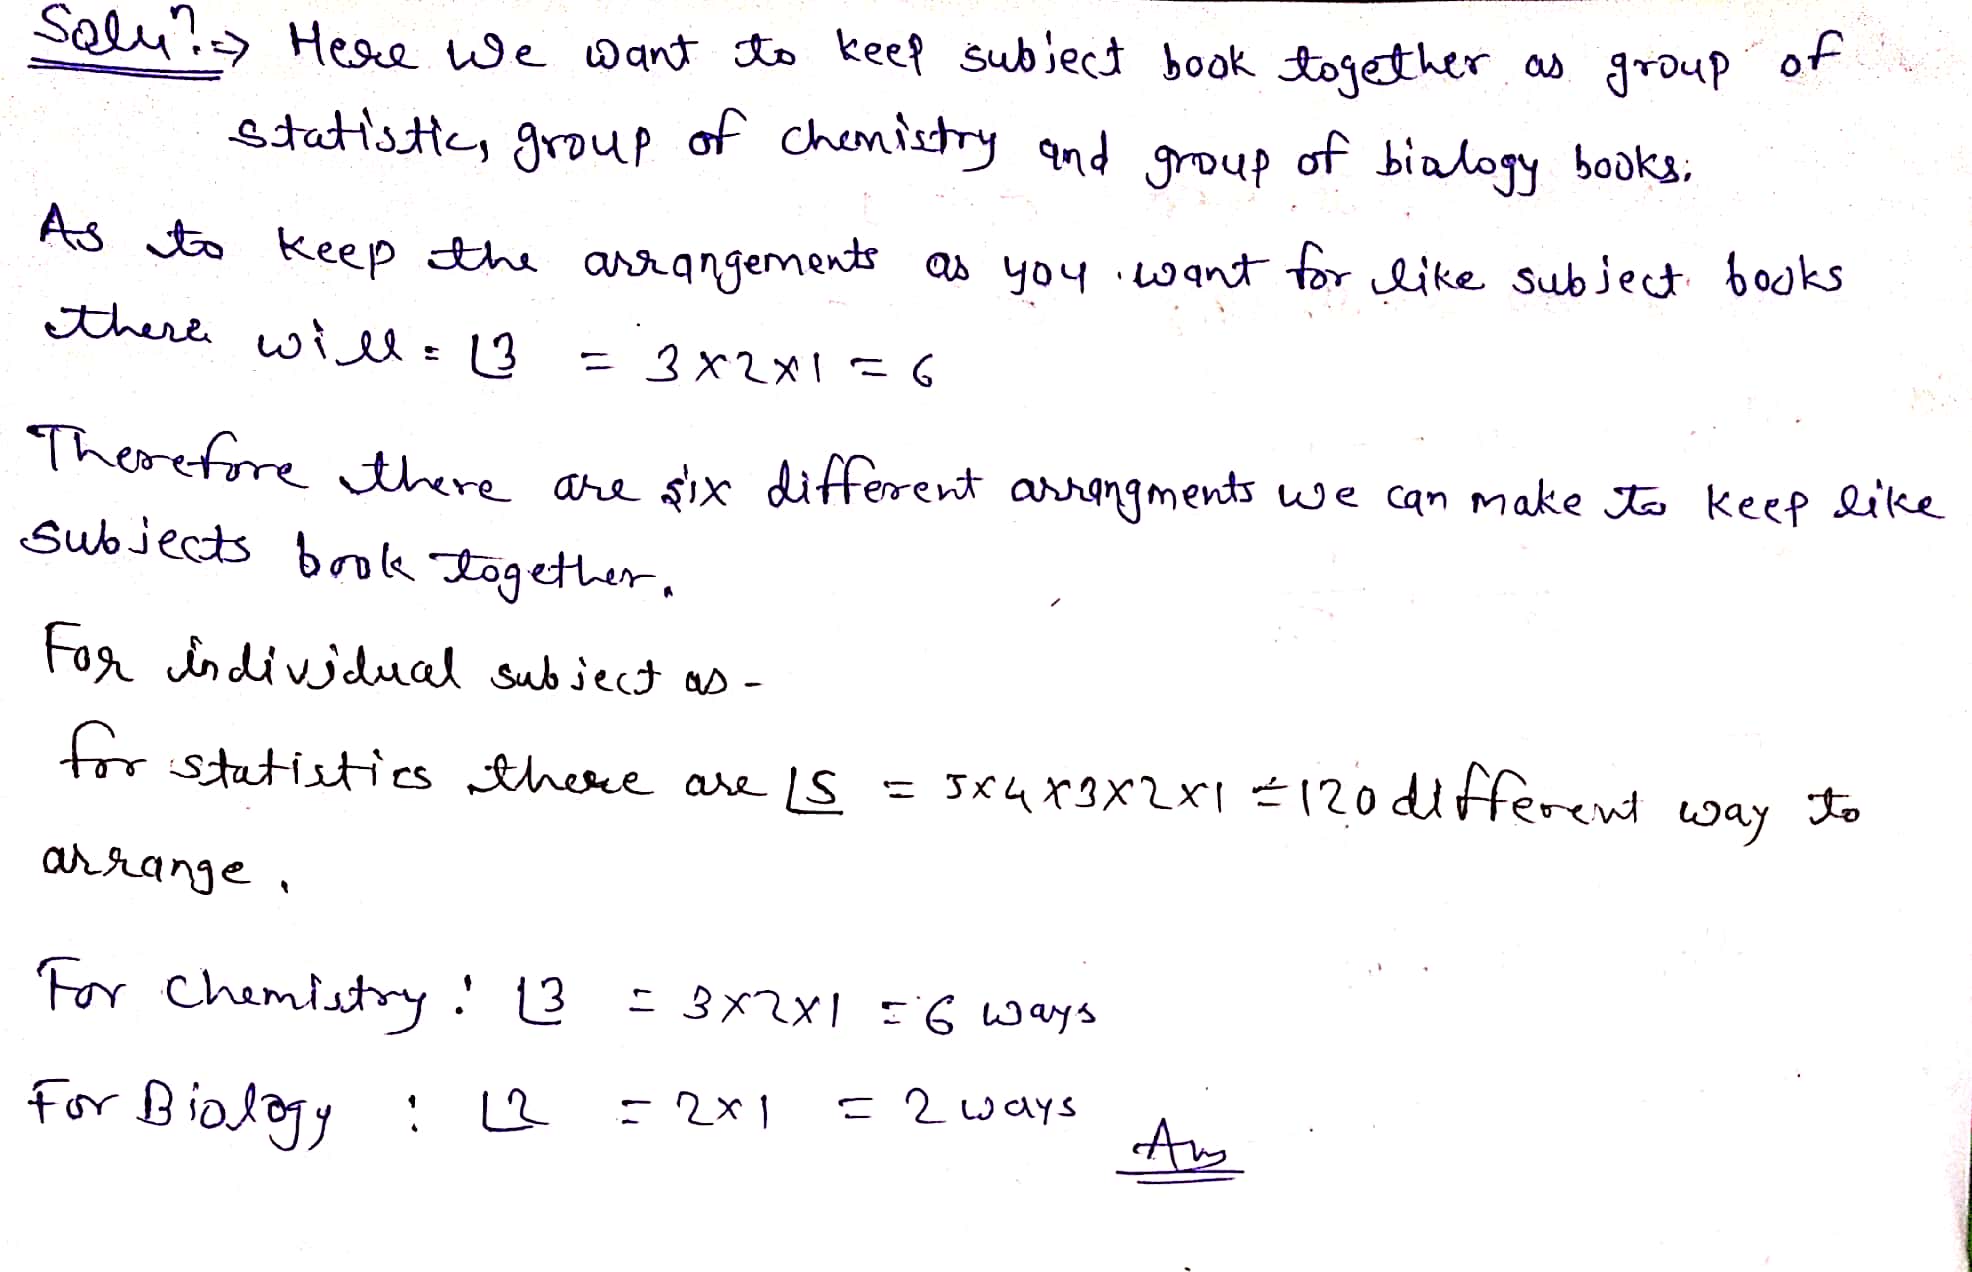 Solun. ⇒ Here we want to keep subject book together as group of
statistic, group of chemistry and group of bialogy books.
As to keep the arrangements as you want for like subject books
there will = ⌊3 = 3×2×1 = 6
Therefore there are six different arrangments we can make to keep like
Subjects book together.
For individual subject as -
for statistics there are ⌊5 = 5×4×3×2×1 = 120 different way to
arrange.
For Chemistry : ⌊3 = 3×2×1 = 6 ways
For Biology : ⌊2 = 2×1 = 2 ways
Ans